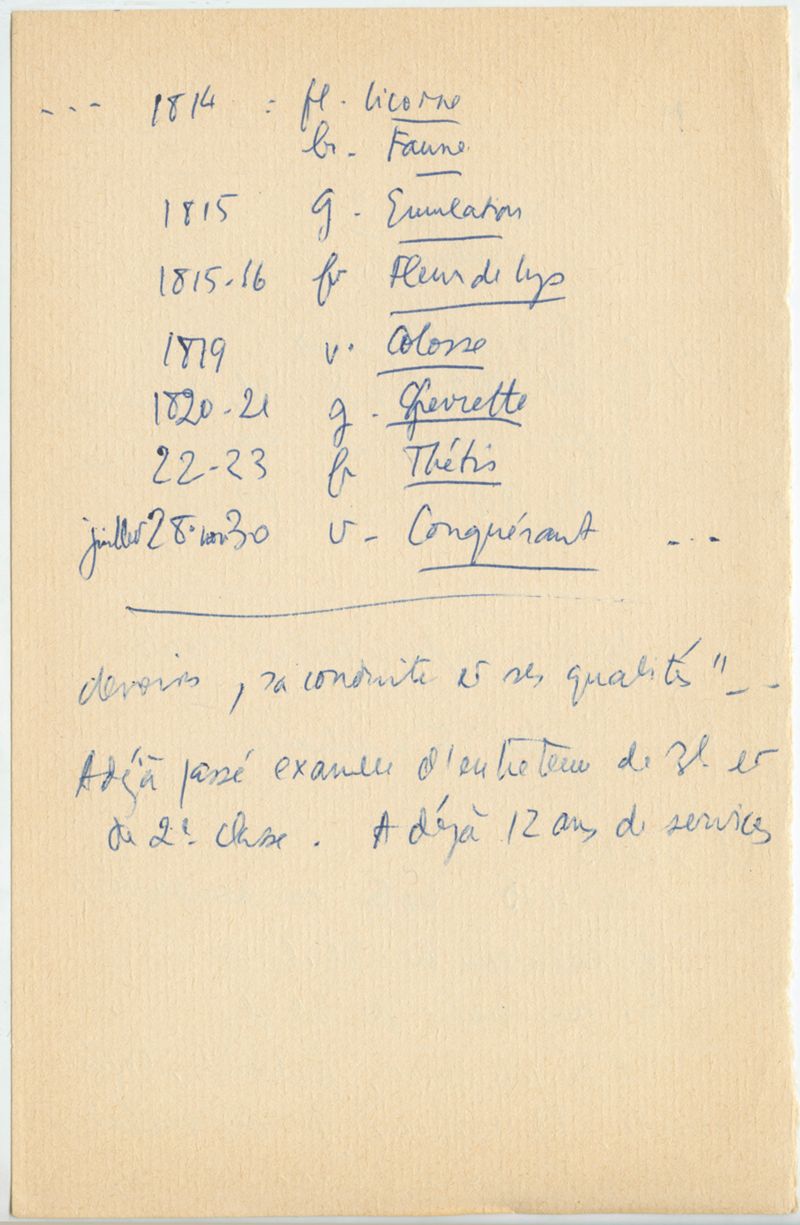 --- 1814 : fl. Licorne
br. Faune
1815 g. Emulation
1815-16 fr Fleur de Lys
1819 v. Colosse
1820-21 g. Chevrette
22-23 fr Thétis
juillet 28- 30 v- Conquérant ---
devoirs, sa conduite et ses qualités" --
A déjà passé examen d'entretenu de et
de 2e classe. A déjà 12 ans de services